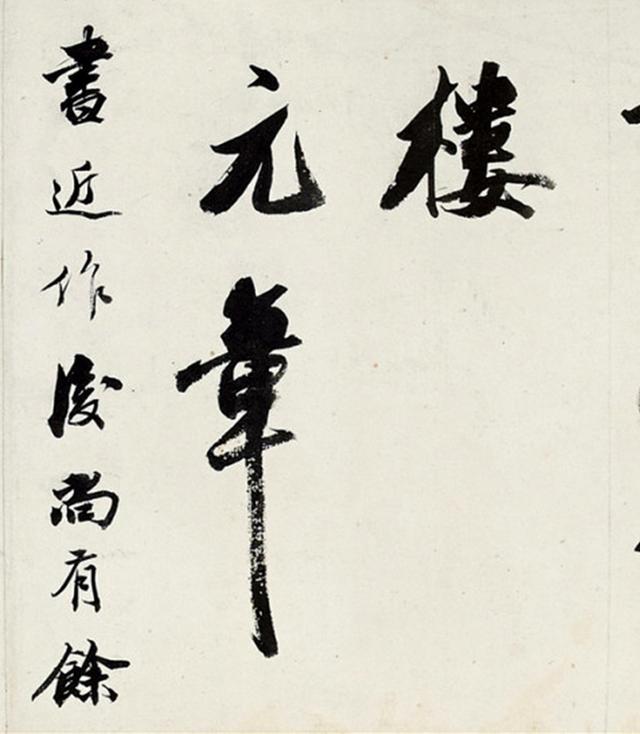 樓
元章
書近作後尚有餘